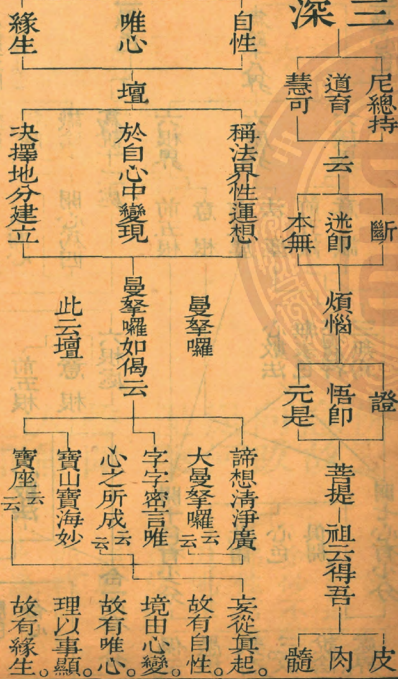 三深
尼總持 道育 慧可
云
斷 迷卽 本無
煩惱
證 悟卽 元是
菩提
祖云得吾
皮 肉 髓
自性 唯心 緣生
壇
稱法界性運想
於自心中變現
決擇地分建立
曼拏囉
曼拏囉如偈云
此云壇
諦想清淨廣
大曼拏囉云云
字字密言唯
心之所成云云
寶山寶海妙
寶座云云
妄從眞起。
故有自性。
境由心變。
故有唯心。
理以事顯。
故有緣生。